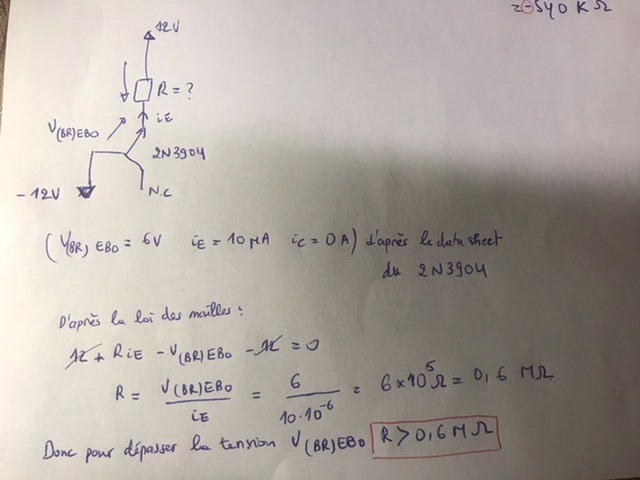 = -540 KΩ
12V
R = ?
iE
V(BR)EBO
2N3904
-12V
N.C
(V(BR) EBO = 6V iE = 10 μA iC = 0 A) d'après le data sheet
du 2N3904
D'après la loi des mailles :
12 + R iE - V(BR)EBO - 12 = 0
R = V(BR)EBO / iE = 6 / 10·10^-6 = 6×10^5 Ω = 0,6 MΩ
Donc pour dépasser la tension V(BR)EBO R > 0,6 MΩ